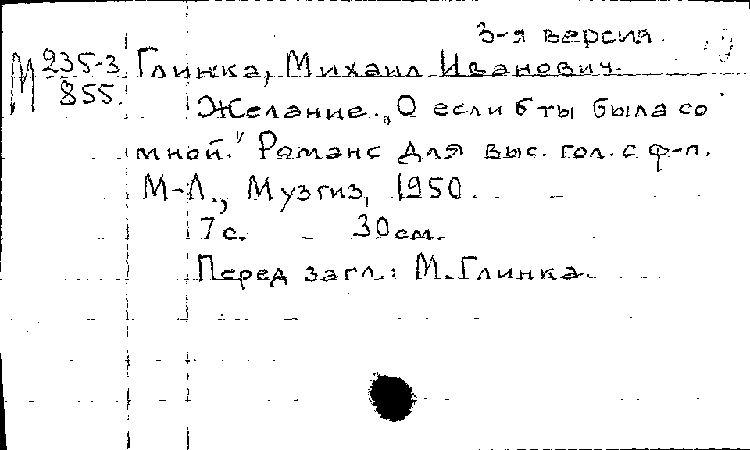 3-я версия.
М 235-3 Глинка, Михаил Иванович.
855. Желание. „О если б ты была со
мной." Романс для выс. гол. с ф-п.
М-Л., Музгиз, 1950.
7 с. - 30 см.
Перед загл.: М. Глинка.